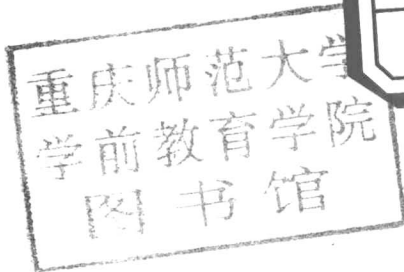 重庆师范大学
学前教育学院
图书馆